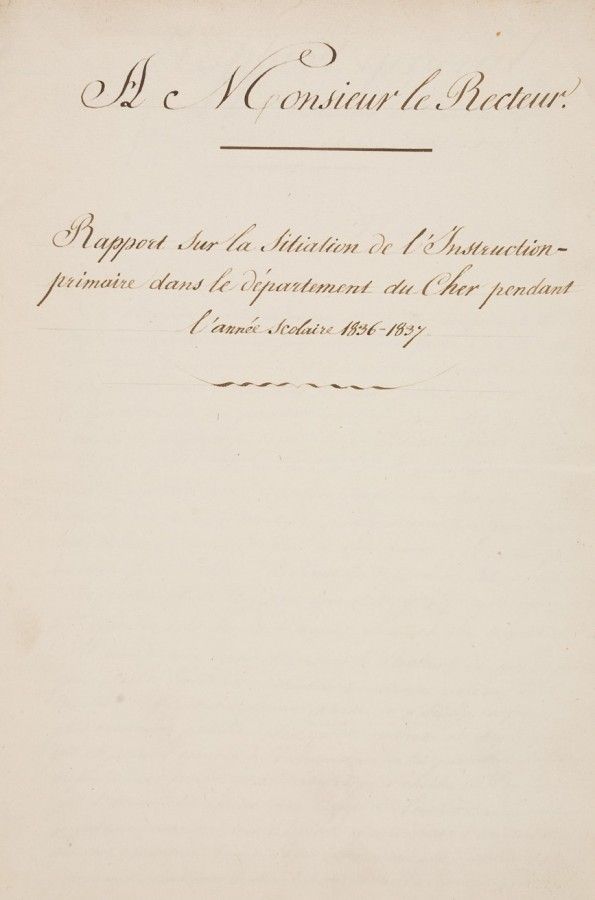 A Monsieur le Recteur.
Rapport sur la sitiation de l'Instruction-
primaire dans le département du Cher pendant
l'année scolaire 1836-1837